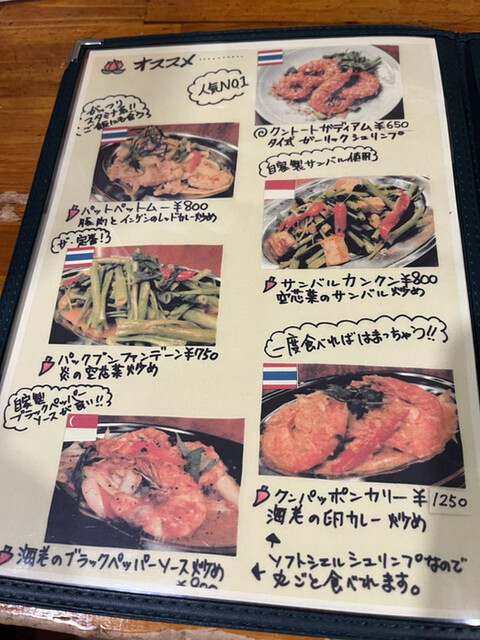 オススメ
人気NO.1
がっつり
スタミナ系!!
ご飯にも合う♪
パットペットムー¥800
豚肉とインゲンのレッドカレー炒め
ザ・定番!♪
パックブンファンデーン¥750
炎の空芯菜炒め
自家製
ブラックペッパー
ソースが良い!!
海老のブラックペッパーソース炒め
クントートガディアム¥650
タイ式ガーリックシュリンプ
自家製サンバル使用♪
サンバルカンクン¥800
空芯菜のサンバル炒め
一度食べればはまっちゃう!!
クンパッポンカリー¥1250
海老の卵カレー炒め
ソフトシェルシュリンプなので
丸ごと食べれます。